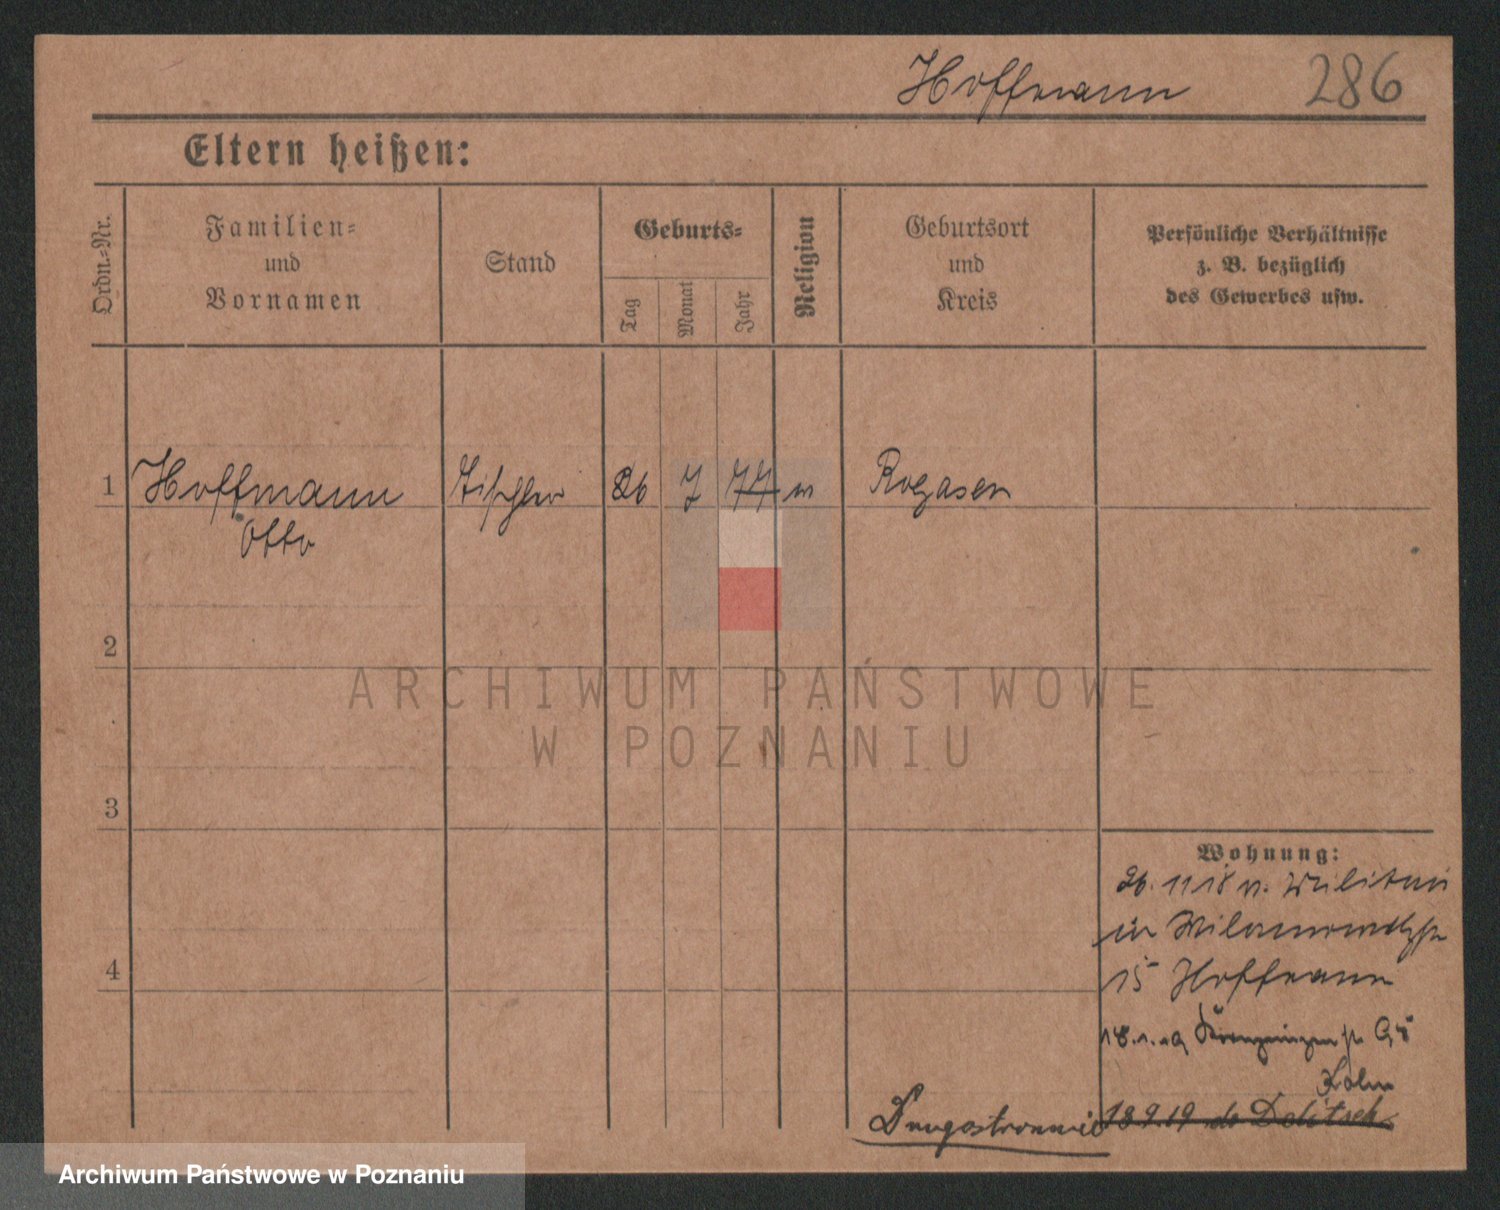 Hoffmann 286
Eltern heißen:
Ordn.-Nr.
Familien-
und
Vornamen
Stand
Geburts-
Tag
Monat
Jahr
Religion
Geburtsort
und
Kreis
Persönliche Verhältnisse
z. B. bezüglich
des Gewerbes usw.
1 Hoffmann Tischler 26 7 77 Rogasen
Otto
2
ARCHIWUM PAŃSTWOWE
W POZNANIU
3
Wohnung:
26. 11 18 v.
in
4
15 Hoffmann
18.9.19 do
Archiwum Państwowe w Poznaniu